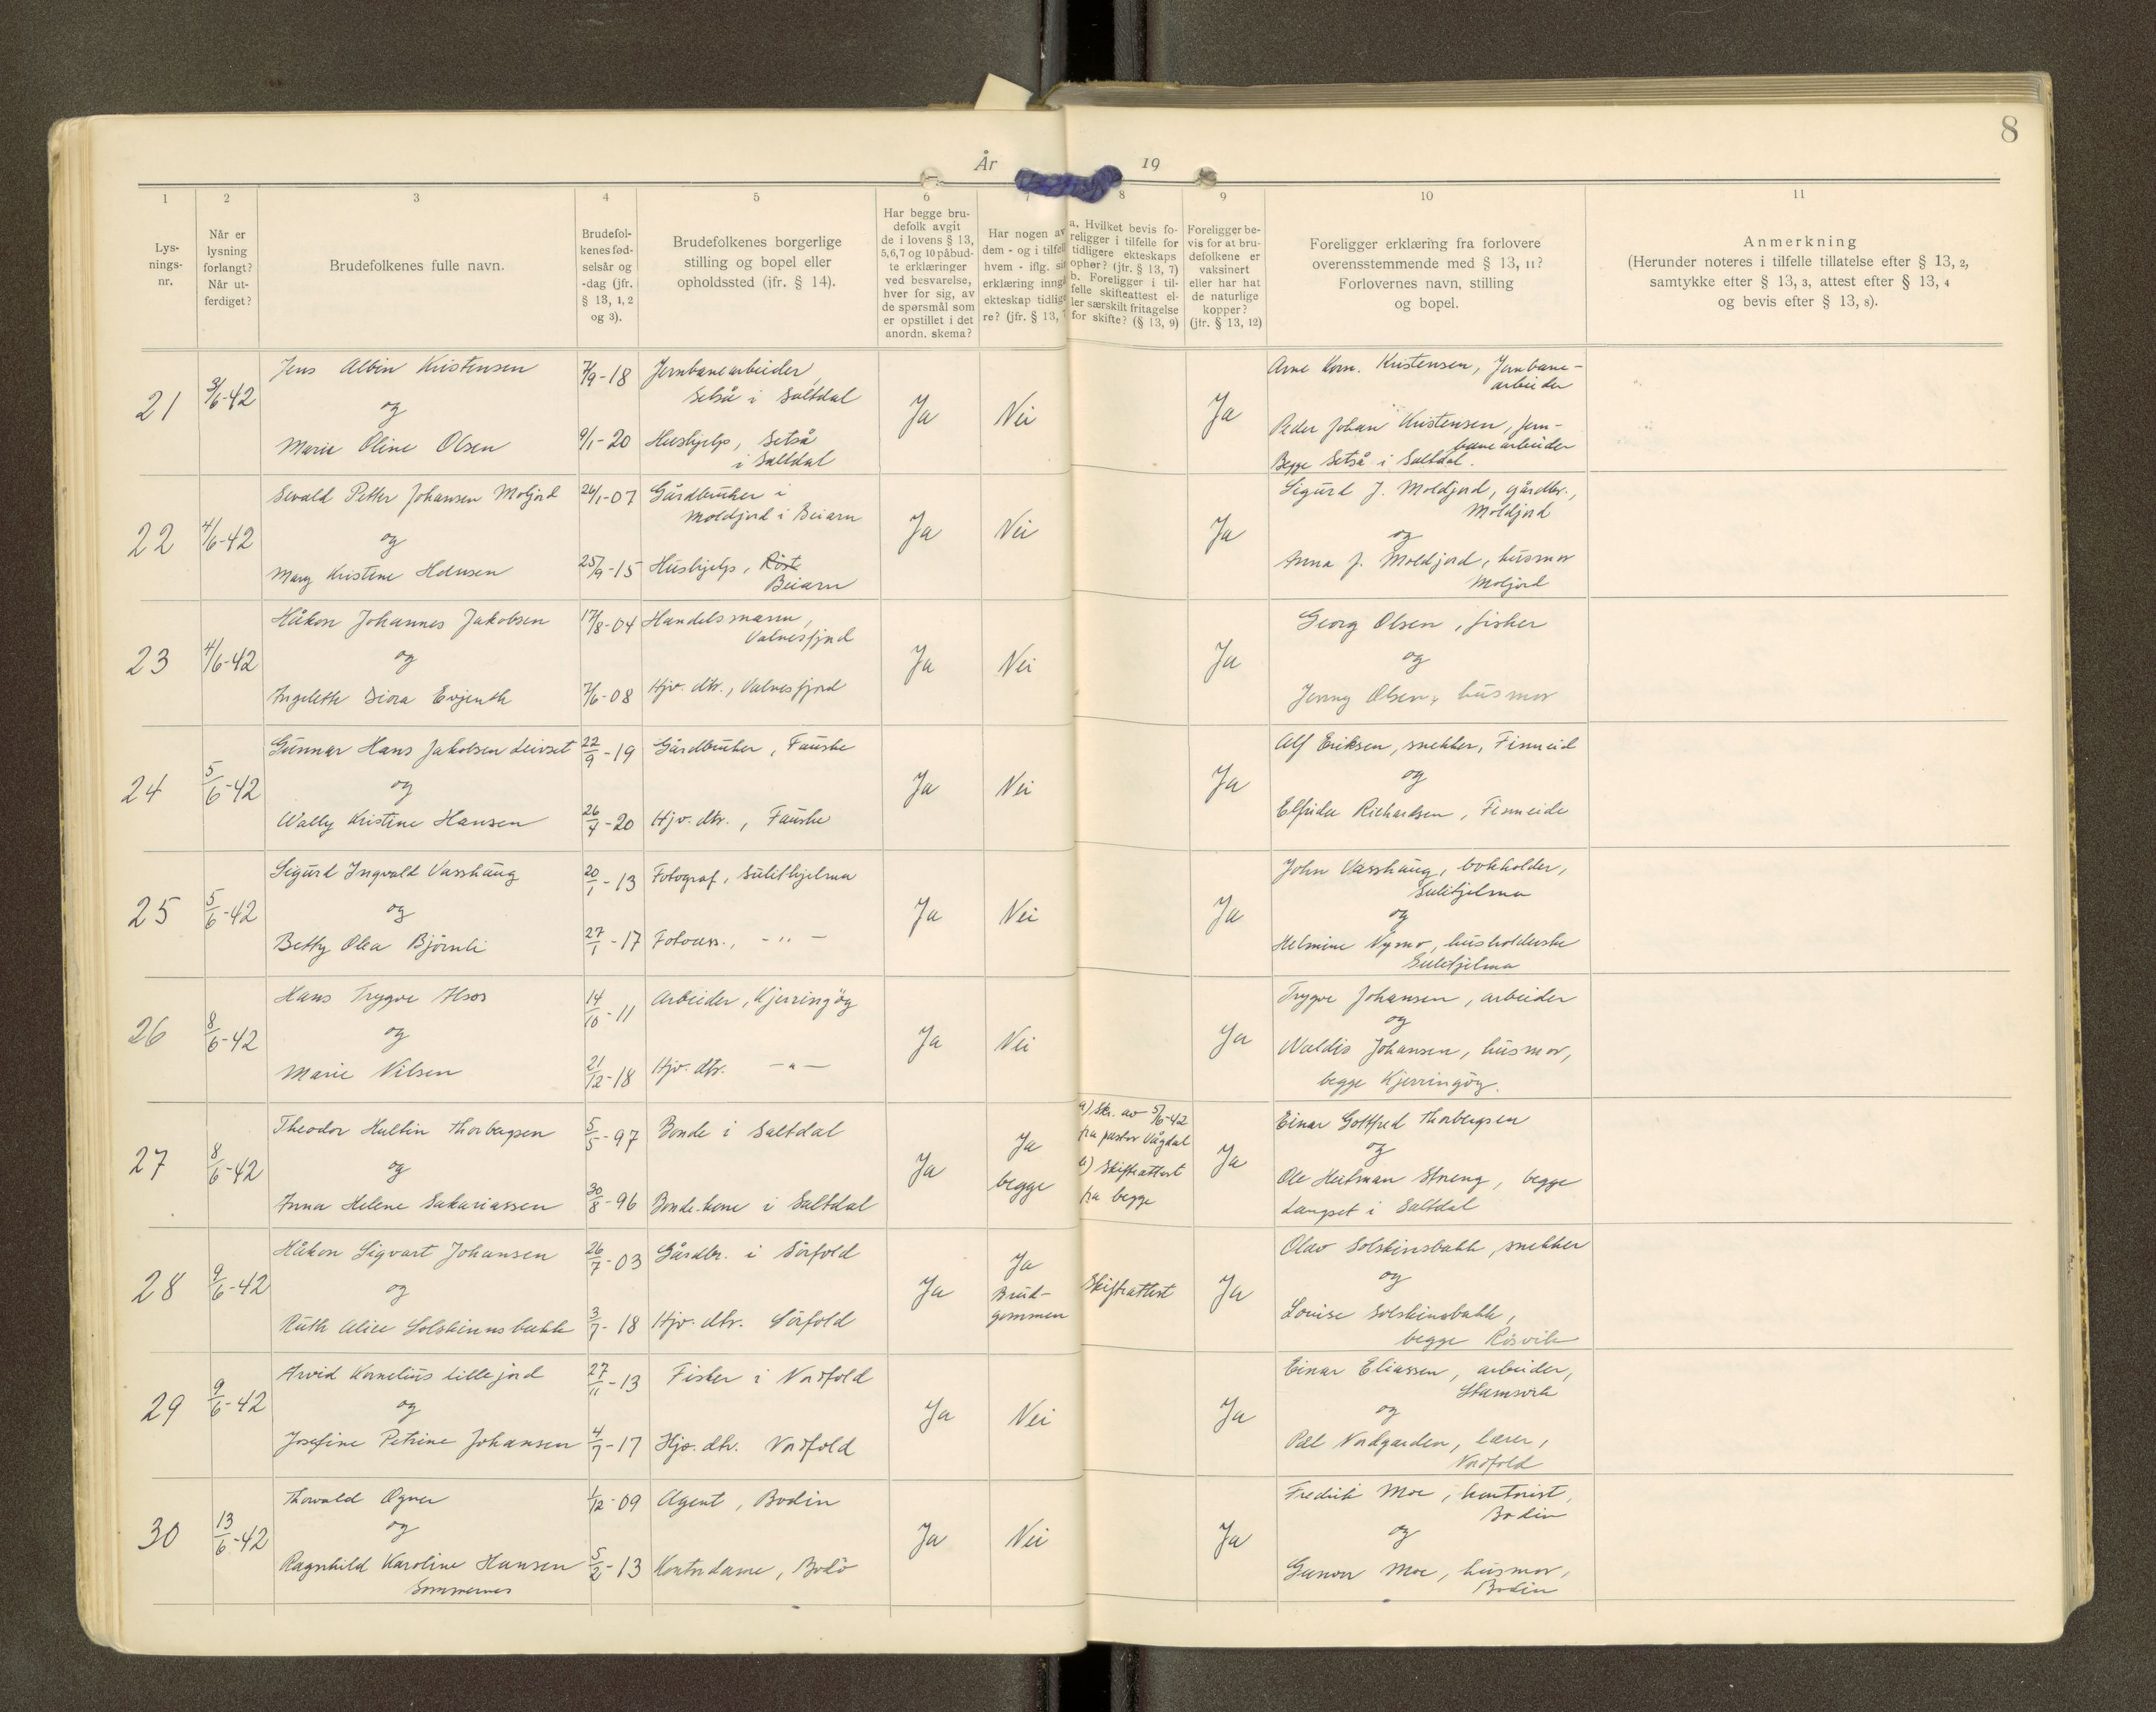 8
År 19
1 2 3 4 5 6 7 8 9 10 11
Lys-
nings-
nr.
Når er
lysning
forlangt?
Når ut-
ferdiget?
Brudefolkenes fulle navn.
Brudefol-
kenes fød-
selsår og
-dag (jfr.
§ 13, 1, 2
og 3).
Brudefolkenes borgerlige
stilling og bopel eller
opholdssted (jfr. § 14).
Har begge bru-
defolk avgit
de i lovens § 13,
5,6,7 og 10 påbud-
te erklæringer
ved besvarelse,
hver for sig, av
de spørsmål som
er opstillet i det
anordn. skema?
Har nogen av
dem - og i tilfel
hvem - iflg. si
erklæring inng
ekteskap tidlig
re? (jfr. § 13, 7
a. Hvilket bevis fo-
religger i tilfelle for
tidligere ekteskaps
ophør? (jfr. § 13, 7)
b. Foreligger i til-
felle skifteattest el-
ler særskilt fritagelse
for skifte? (§ 13, 9)
Foreligger be-
vis for at bru-
defolkene er
vaksinert
eller har hat
de naturlige
kopper?
(jfr. § 13, 12)
Foreligger erklæring fra forlovere
overensstemmende med § 13, 11?
Forlovernes navn, stilling
og bopel.
Anmerkning
(Herunder noteres i tilfelle tillatelse efter § 13, 2,
samtykke efter § 13, 3, attest efter § 13, 4
og bevis efter § 13, 8).
21 3/6-42
Jens Albin Kristensen
og
Marie Oline Olsen
7/9-18
9/1-20
Jernbanearbeider,
Setså i Saltdal
Hushjelp, Setså
i Saltdal
Ja Nei Ja
Arne Korn. Kristensen, Jernbane-
arbeider
Peder Johan Kristensen, jern-
banearbeider
Begge Setså i Saltdal.
22 4/6-42
Sevald Petter Johansen Moljord
og
Mary Kristine Hansen
26/1-07
25/9-15
Gårdbruker i
Moldjord i Beiarn
Hushjelp, Röst
Beiarn
Ja Nei Ja
Sigurd J. Moldjord, gårdbr.,
Moldjord
og
Anna J. Moldjord, husmor
Moljord
23 4/6-42
Håkon Johannes Jakobsen
og
Ingelette Diora Evjenth
17/8-04
7/6-08
Handelsmann,
Valnesfjord
Hjv. dtr., Valnesfjord
Ja Nei Ja
Georg Olsen, fisker
og
Jenny Olsen, husmor
24 5/6-42
Gunnar Hans Jakobsen Leivset
og
Wally Kristine Hansen
22/9-19
26/4-20
Gårdbruker, Fauske
Hjv. dtr., Fauske
Ja Nei Ja
Alf Eriksen, snekker, Finneid
og
Elfrida Richardsen, Finneide
25 5/6-42
Sigurd Ingvald Vasshaug
og
Betty Olea Björnli
20/1-13
27/1-17
Fotograf, Sulithjelma
Fotoass., - " -
Ja Nei Ja
John Vasshaug, bokholder,
Sulitjelma
og
Helmine Nymo, husholderske
Sulitjelma
26 8/6-42
Hans Trygve Alsos
og
Marie Nilsen
14/10-11
21/12-18
Arbeider, Kjerringöy
Hjv. dtr. - " -
Ja Nei Ja
Trygve Johansen, arbeider
og
Waldis Johansen, husmor,
begge Kjerringöy.
27 8/6-42
Theodor Hultin Thorbergsen
og
Anna Helene Sakariassen
5/5-97
30/8-96
Bonde i Saltdal
Bonde-kone i Saltdal
Ja
Ja
begge
a) Skr. av 5/6-42
fra pastor Vågdal
b) Skifteattest
fra begge
Ja
Einar Gottfred Thorbergsen
og
Ole Heitman Streng, begge
Langset i Saltdal
28 9/6-42
Håkon Sigvart Johansen
og
Ruth Alice Solskinnsbakk
26/7-03
3/7-18
Gårdbr. i Sörfold
Hjv. dtr. Sörfold
Ja
Ja
Brud-
gommen
Skifteattest
Ja
Olav Solskinsbakk, snekker
og
Louise Solskinsbakk,
begge Rösvik
29 9/6-42
Arvid Kornelius Lillejord
og
Josefine Petrine Johansen
27/11-13
4/7-17
Fisker i Nordfold
Hjv. dtr. Nordfold
Ja Nei Ja
Einar Eliassen, arbeider,
Stamsvik
og
Pål Nordgarden, lærer,
Nordfold
30 13/6-42
Thorvald Øgner
og
Ragnhild Karoline Hansen
Sommernes
1/12-09
5/2-13
Agent, Bodin
Kontordame, Bodö
Ja Nei Ja
Fredrik Moe, kontorist,
Bodin
og
Gunvor Moe, husmor,
Bodin